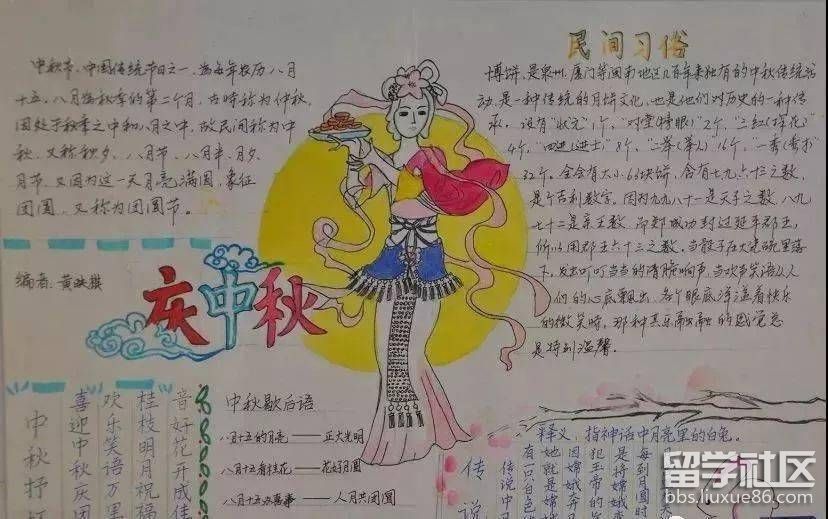 中秋节、中国传统节日之一、为每年农历八月
十五。八月为秋季的第二个月，古时称为仲秋，
因处于秋季之中和八月之中，故民间称为中
秋，又称秋夕、八月节、八月半、月夕、
月节，又因为这一天月亮满圆，象征
团圆，又称为团圆节。
编者：黄
庆中秋
民间习俗
博饼，是泉州、厦门等闽南地区几百年来独有的中秋传统活
动，是一种传统的月饼文化，也是他们对历史的一种传
承。设有"状元"1个，"对堂(榜眼)"2个，"三红(探花)"
4个，"四进(进士)"8个，"二举(举人)"16个，一秀(秀才)
32个。全会有大小63块饼，含有七九六十三之数，
是个吉利数字。因为九九八十一是天子之数，八九
七十二是亲王数，而郑成功封过延平郡王，
所以用郡王六十三之数。当骰子在大瓷碗里落
下，发出叮叮当当的清脆响声，当欢声笑语从人
们的心底飘出，各个眼底洋溢着快乐
的微笑时，那种其乐融融的感觉总
是特别温馨。
中秋抒
喜迎中秋庆团
欢乐笑语万里
桂枝明月祝福
音好花开成佳
中秋歇后语
八月十五的月亮——正大光明
八月十五看桂花——花好月圆
八月十五办喜事——人月共团圆
传说
释义：指神话中月亮里的白兔。
传说中月
有一只白色
她就是嫦
因嫦娥奔
犯玉帝的
是将嫦娥
每到月圆时
留学社区
bbs.liuxue86.com